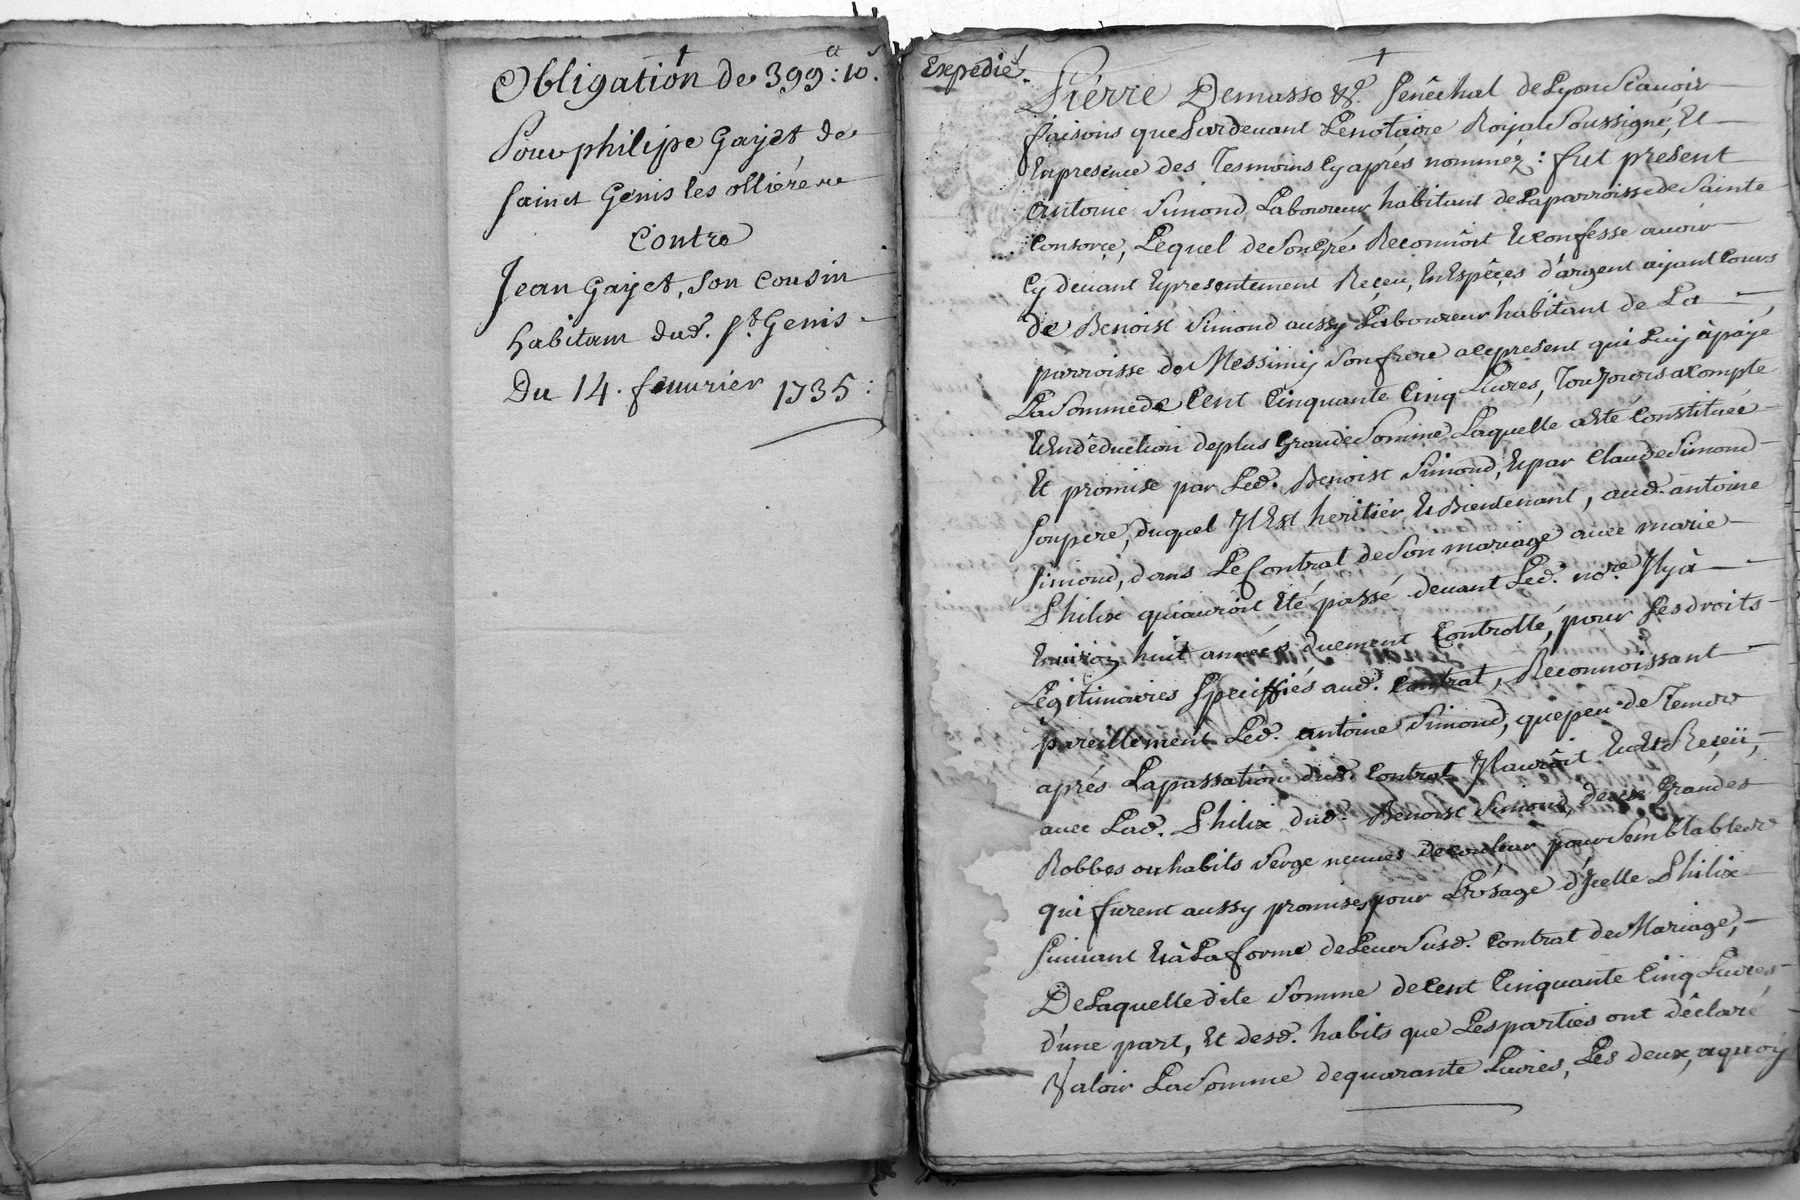 Obligation de 399ᵗᵗ: 10ˢ.
Pour philipe Gayet de
sainct Genis les ollières
Contre
Jean Gayet, son cousin
habitant dud. sᵗ Genis
Du 14. feuurier 1735:
Expedié.
Piérre Demasso &. senêchal de Lyon scauoir
faisons que Pardeuant Le notaire Roijal soussigné, Et
En presence des Tesmoins Cy aprés nomméz: fut present
antoine Simond Laboureur habitant de La parroisse de Sainte
Consorce, Lequel de son gré Reconnôist Et confesse auoir
Cy deuant Et presentement Reçeu, En Espêces d'argent aijant Cours
de Benoist Simond aussy Laboureur habitant de La
parroisse de Messimij son frere a ce present qui Luij à païjé
La somme de Cent Cinquante Cinq Liures, Toujours a Compte
Et En dêduction de plus Grande Somme Laquelle a Eté Constituée
Et promise par Led. Benoist Simond, Et par Claude Simond
son pere, duquel Jl Est heritiér Et Bientenant, aud. antoine
Simond, dans Le Contrat de son mariage auec marie
Philix qui auroit Eté passé deuant Led. noʳᵉ Jl y à
Enuiron huit années duement Controllé, pour ses droits
Légitimaires Speciffiés aud. Contrat, Reconnoissant
pareillement Led. antoine Simond, que peu de Tems
aprés La passation dud. Contrat Jl auroit Eu Et Reçeü,
auec Lad. Philix dud. Benoist Simond, deux Grandes
Robbes ou habits Serge neuues de couleur pour Semblables
qui furent aussy promises pour L'ûsage d'Jcelle Philix
suiuant Et à La forme de Leur Susd. Contrat de Mariage,
De Laquelle dite Somme de Cent Cinquante Cinq Liures
d'une part, Et desd. habits que Les parties ont dêclaré
Valoir La Somme de quarante Liures, Les deux, a quoy